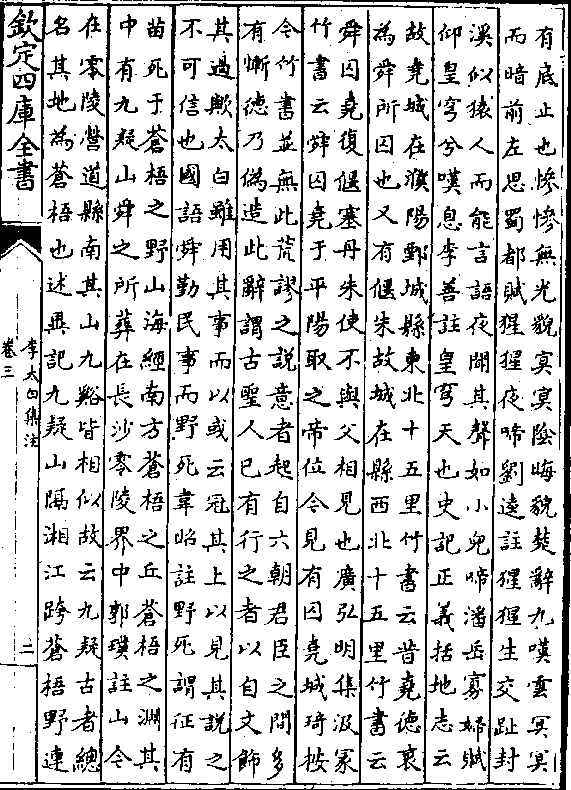 有底止也慘慘無光貌冥冥陰晦貌楚辭九嘆雲冥冥
而暗前左思蜀都賦猩猩夜啼劉逵註猩猩生交趾封
溪似猿人面能言語夜聞其聲如小兒啼潘岳寡婦賦
仰皇穹兮嘆息李善註皇穹天也史記正義括地志云
故堯城在濮陽鄄城縣東北十五里竹書云昔堯德衰
為舜所囚也又有偃朱故城在縣西北十五里竹書云
舜囚堯復偃塞丹朱使不與父相見也廣弘明集汲冢
竹書云舜囚堯于平陽取之帝位今見有囚堯城琦按
今竹書並無此荒謬之說意者起自六朝君臣之間多
有慚德乃偽造此辭謂古聖人已有行之者以自文飾
其過歟太白雖用其事而以或云冠其上以見其說之
不可信也國語舜勤民事而野死韋昭註野死謂征有
苗死于蒼梧之野山海經南方蒼梧之丘蒼梧之淵其
中有九疑山舜之所葬在長沙零陵界中郭璞註山今
在零陵營道縣南其山九谿皆相似故云九疑古者總
名其地為蒼梧也述異記九疑山隔湘江跨蒼梧野連
欽定四庫全書
李太白集注
卷三
二